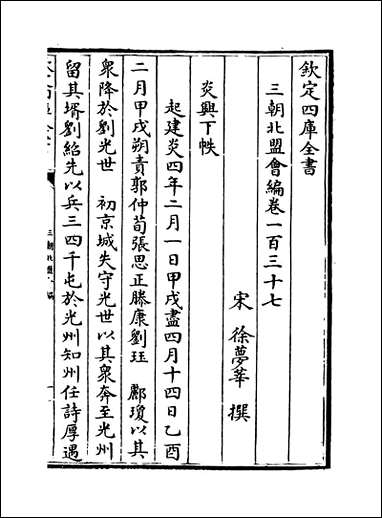 欽定四庫全書
三朝北盟會編卷一百三十七
宋 徐夢莘 撰
炎興下帙
起建炎四年二月一日甲戌盡四月十四日乙酉
二月甲戌朔責郭仲荀張思正滕康劉珏 酈瓊以其
衆降於劉光世 初京城失守光世以其衆奔至光州
留其壻劉紹先以兵三四千屯於光州知州任詩厚遇
三朝北盟會編
一